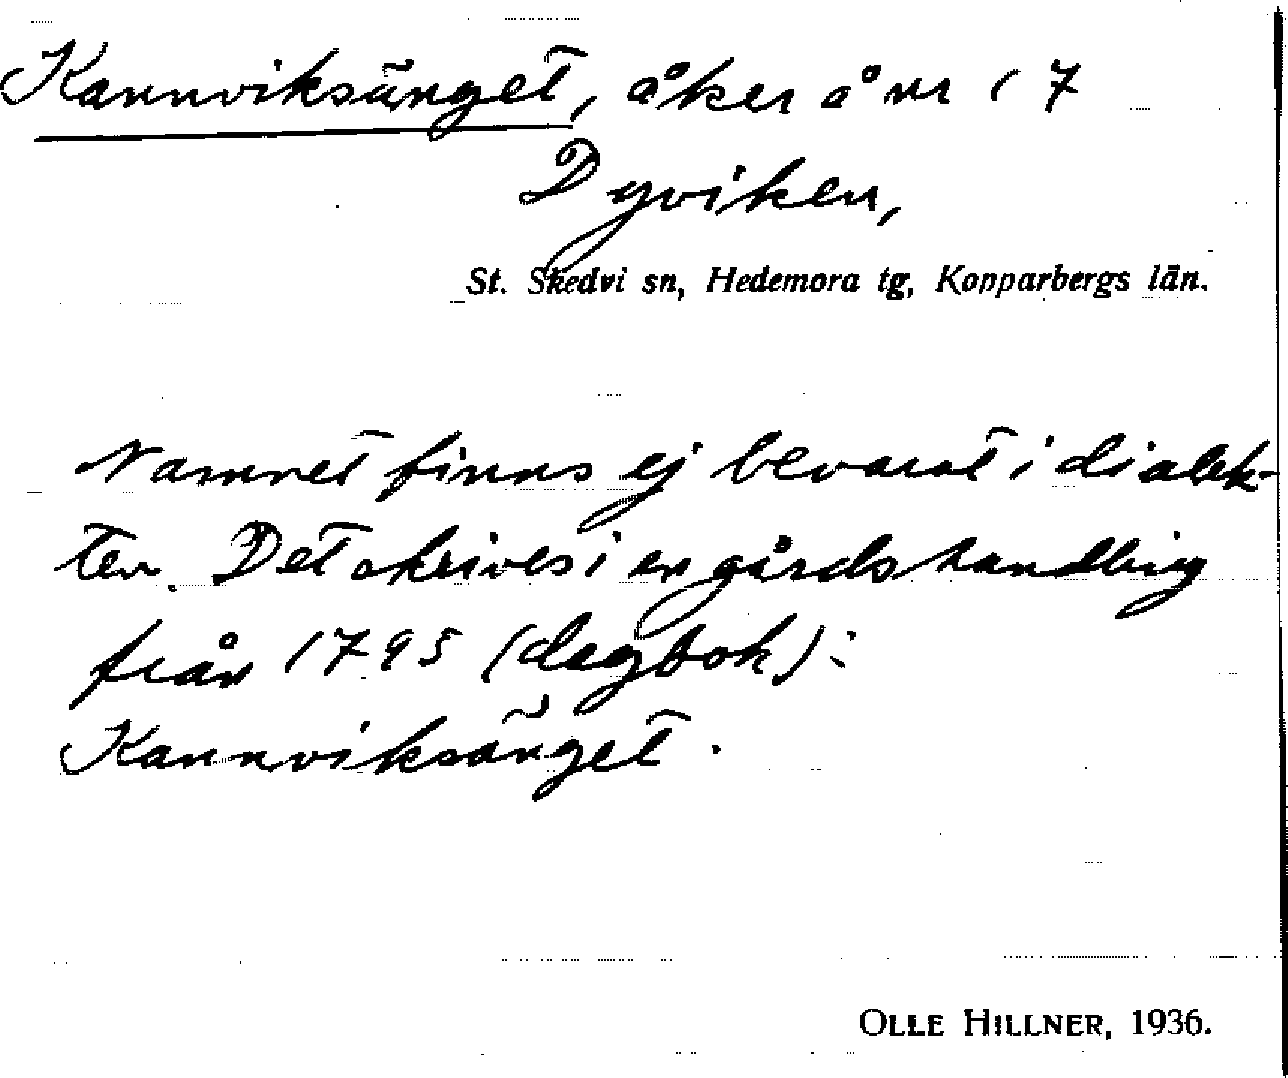 Kannviksänget, åker å nr 17
Dyviken,
St. Skedvi sn, Hedemora tg, Kopparbergs län.
Namnet finns ej bevarat i dialek-
ten. Det skrives i en gårdshandling
från 1795 (dagbok):
Kannviksänget.
OLLE HILLNER, 1936.